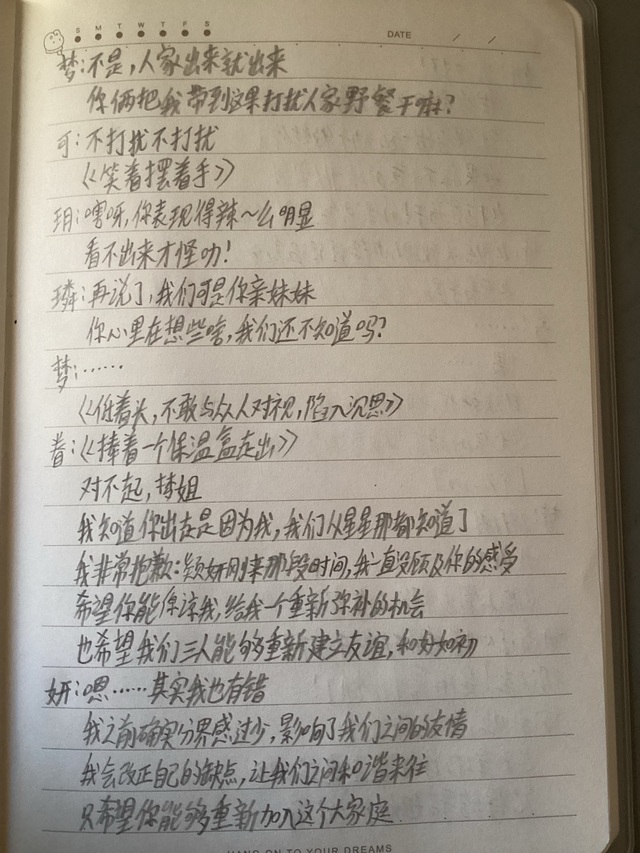 S M T W T F S
DATE / /
梦:不是,人家出来就出来
你俩把我带到这果打扰人家野餐干嘛?
可:不打扰不打扰
《笑着摆着手》
玥:嗐呀,你表现得辣~么明显
看不出来才怪叻!
璘:再说了,我们可是你亲妹妹
你心里在想些啥,我们还不知道吗?
梦:……
《低着头,不敢与众人对视,陷入沉思》
眷:《捧着一个保温盒走出》
对不起,梦姐
我知道你出走是因为我,我们从星星那都知道了
我非常抱歉:颖妍刚来那段时间,我一直没顾及你的感受
希望你能原谅我,给我一个重新弥补的机会
也希望我们三人能够重新建立友谊,和好如初
妍:嗯……其实我也有错
我之前确实分界感过少,影响了我们之间的友情
我会改正自己的缺点,让我们之间和谐来往
只希望你能够重新加入这个大家庭
HANG ON TO YOUR DREAMS